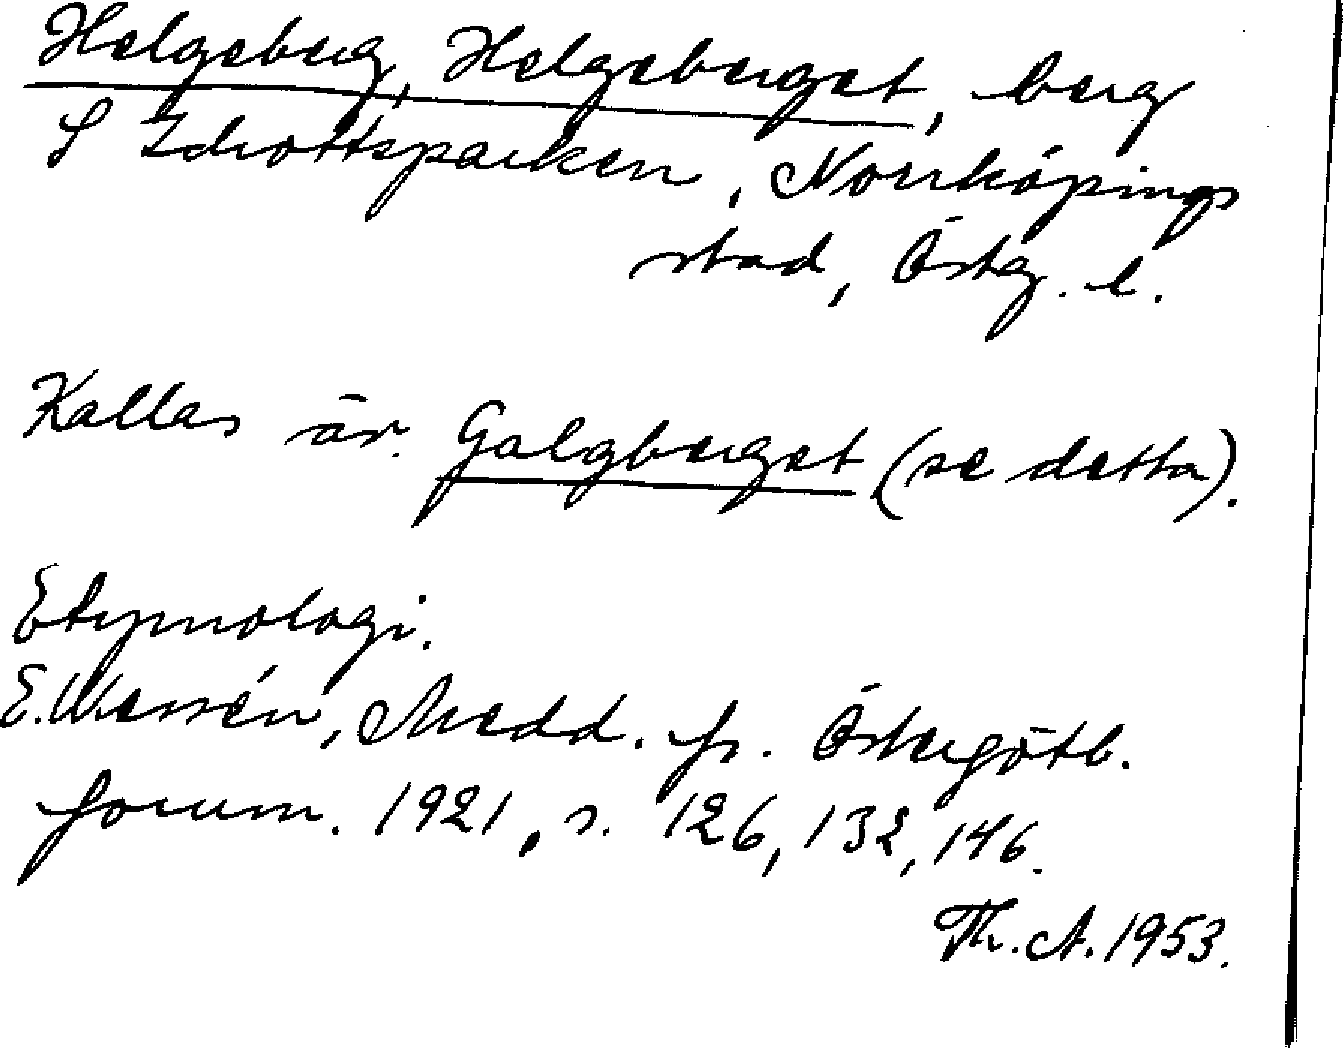 Helgeberg, Helgeberget, berg
S Idrottsparken, Norrköpings
stad, Östg. l.
Kallas äv. Galgberget (se detta).
Etymologi.
E. Wessén, Medd. fr. Östergötl.
fornm. 1921, s. 126, 132, 146.
Th. A. 1953.